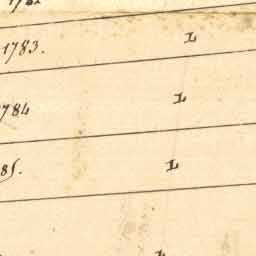 1783. L
784 L
85. L